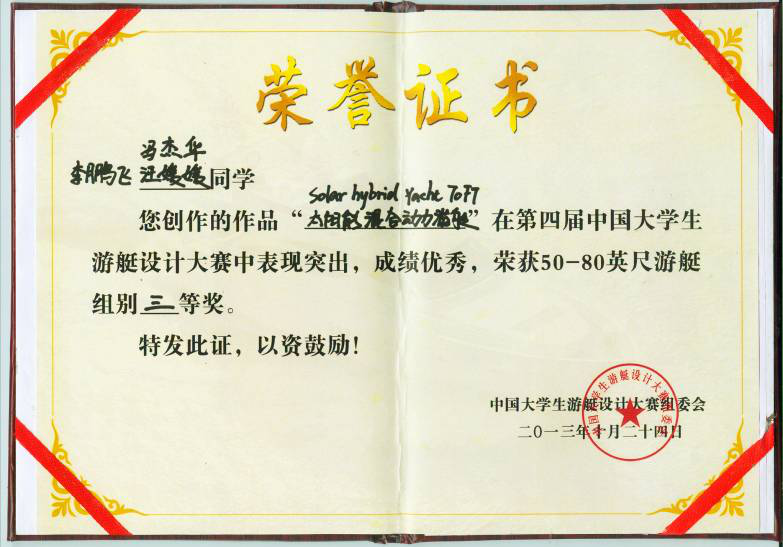 荣誉证书
冯杰华
李鹏飞 汪媛媛同学
Solar hybrid Yacht 70FT
您创作的作品“太阳能混合动力游艇”在第四届中国大学生
游艇设计大赛中表现突出，成绩优秀，荣获50-80英尺游艇
组别三等奖。
特发此证，以资鼓励！
中国大学生游艇设计大赛组委会
二〇一三年十月二十四日
中国大学生游艇设计大赛组委会